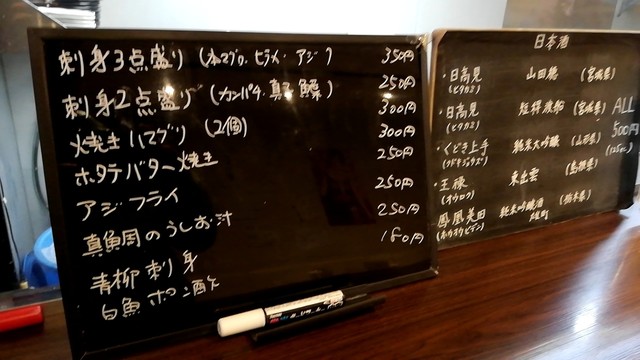 刺身3点盛り (本マグロ、ヒラメ、アジ) 350円
刺身2点盛り (カンパチ、真鰺) 250円
焼きハマグリ (2個) 300円
ホタテバター焼き 300円
アジフライ 250円
真魚周のうしお汁 250円
青柳刺身 250円
白魚ポン酢 180円
日本酒
・日高見 山田穂 (宮城県)
(ヒタカミ)
・日高見 短稈渡船 (宮城県)
(ヒタカミ)
・くどき上手 純米大吟醸 (山形県)
(クドキジョウズ)
・王祿 東出雲 (島根県)
(オウロク)
鳳凰美田 純米吟醸酒 (栃木県)
(ホウオウビデン)
ALL
500円